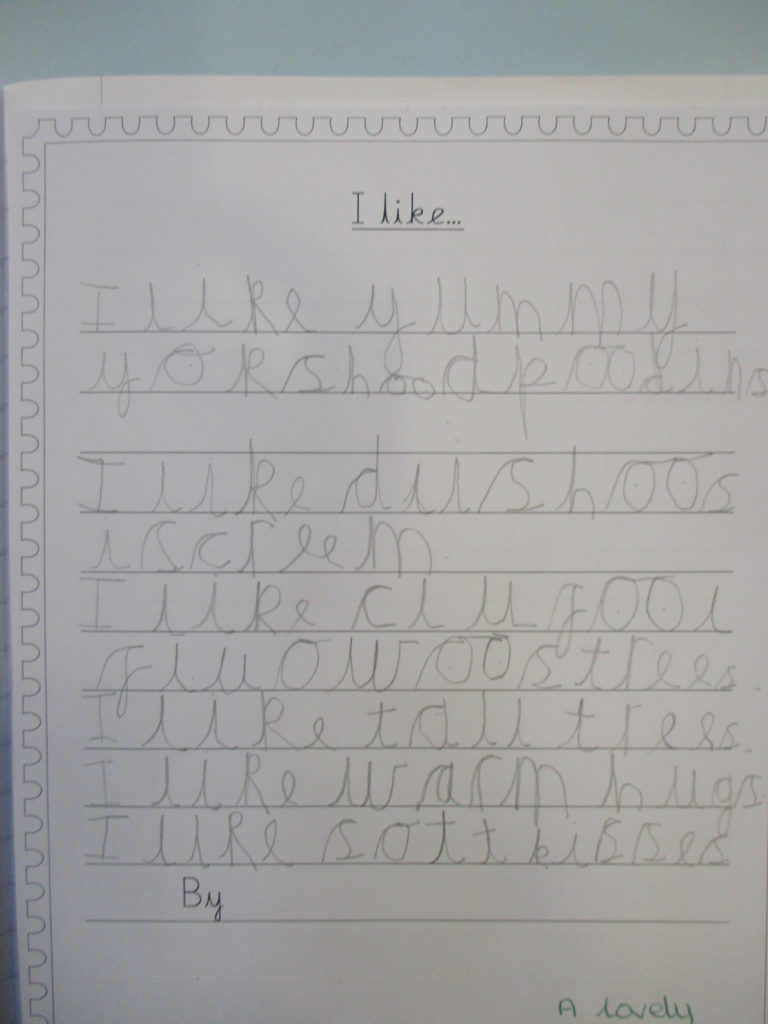 I like...
I like yummy
yorkshood poodins
I like dilishoos
iscreem
I like
trees.
I like tall trees.
I like warm hugs
I like soft kisses
By
A lovely